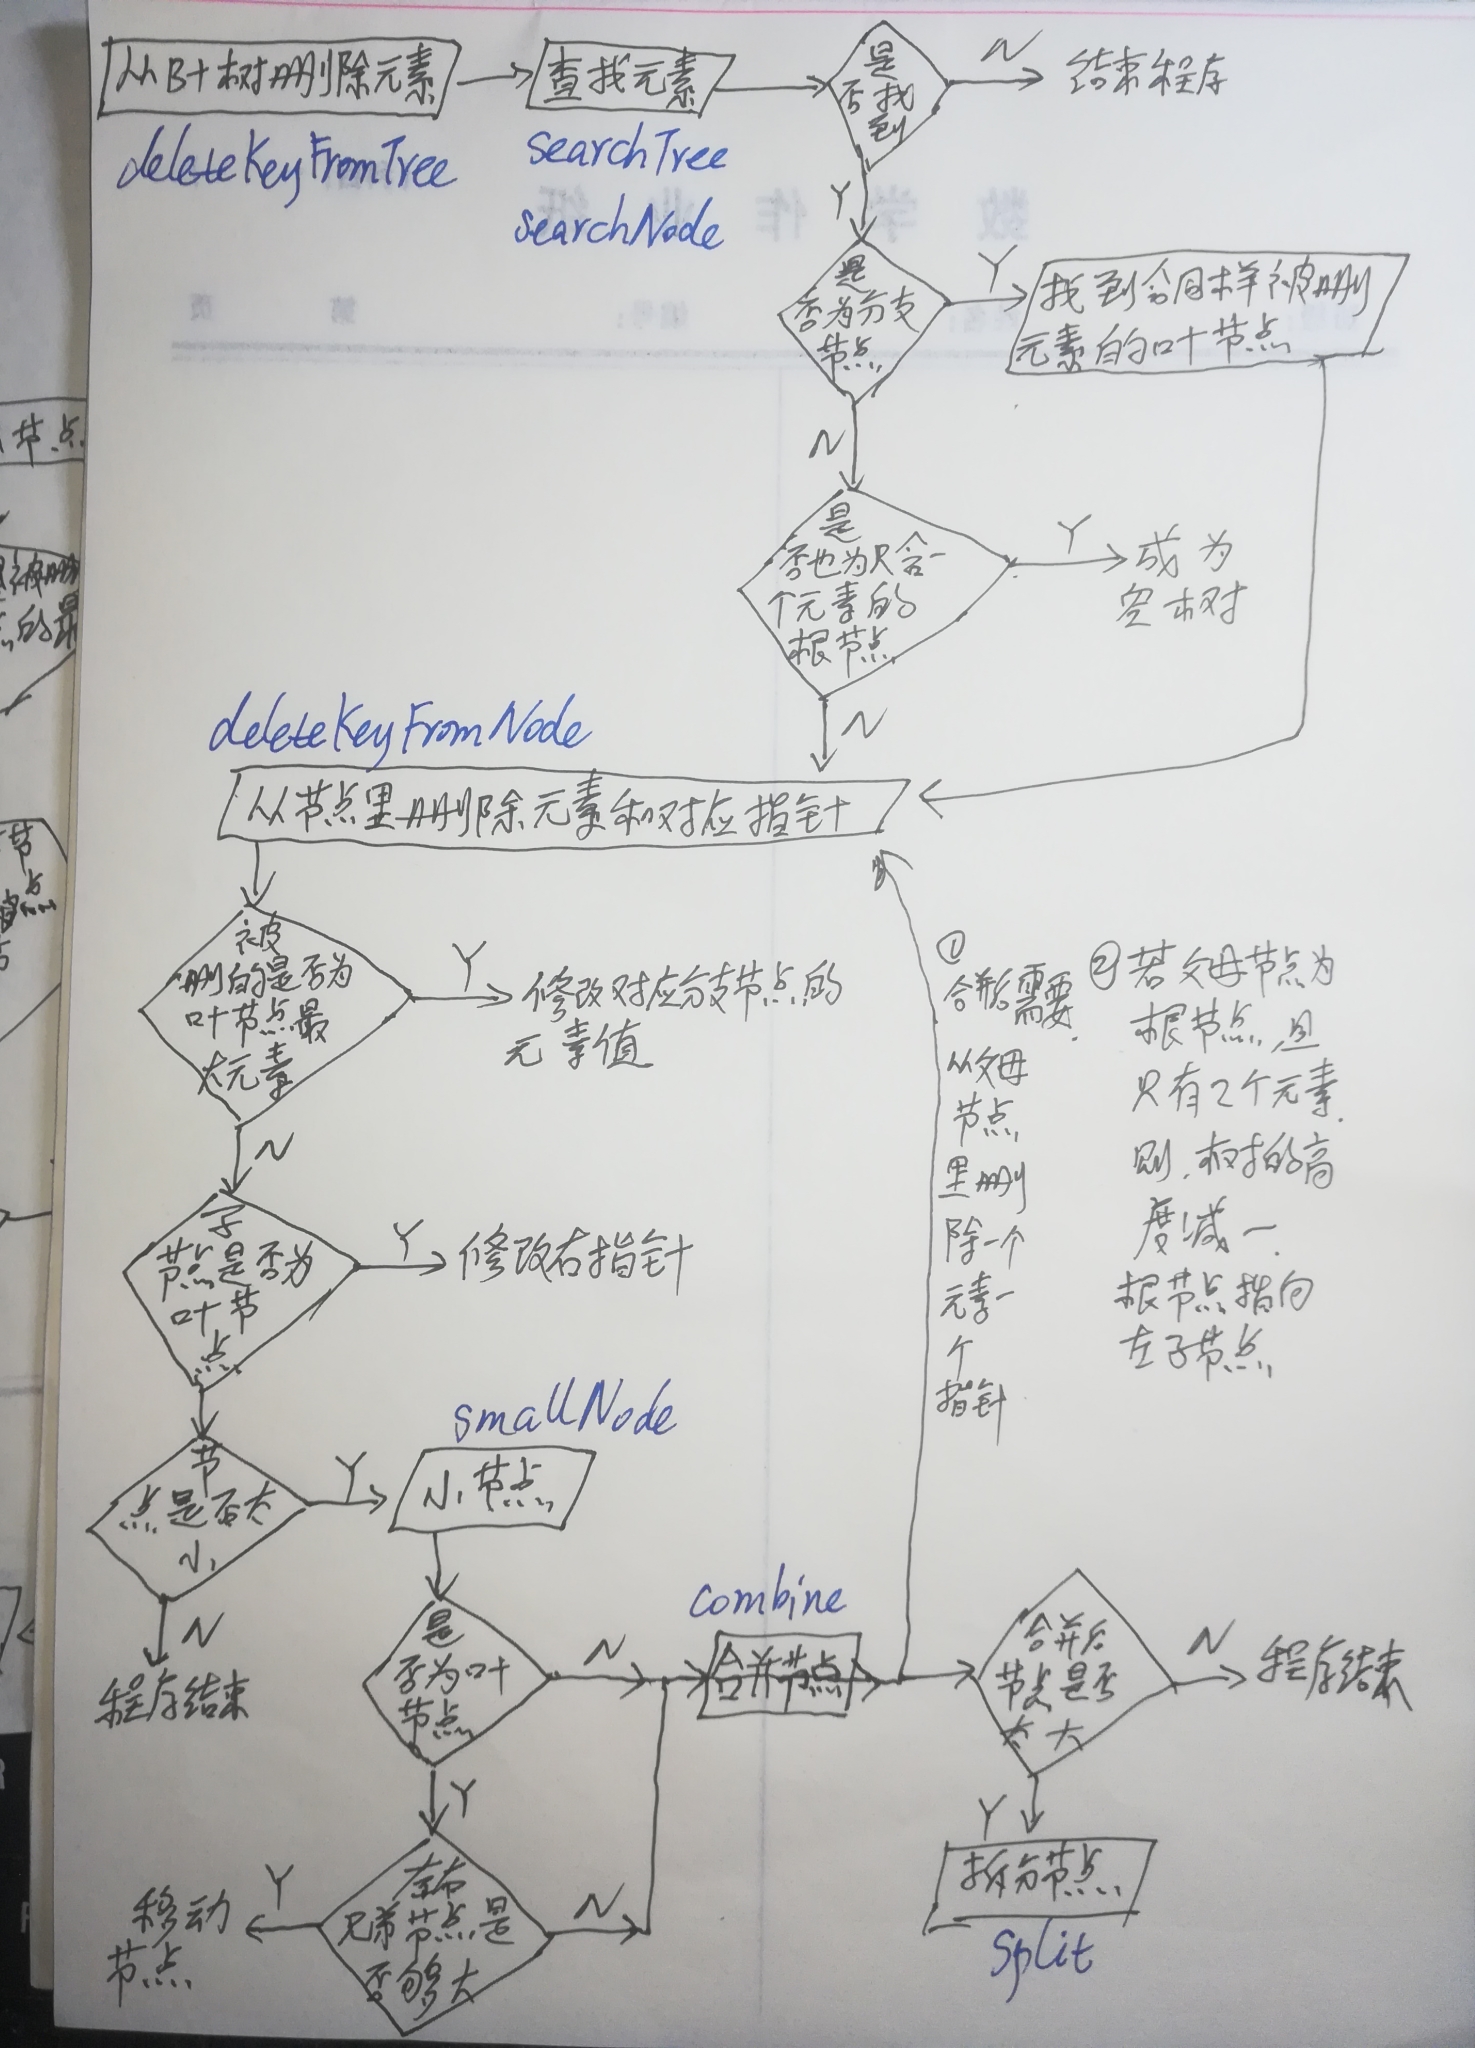 从B+树删除元素
查找元素
是
否找
到
N
结束程序
deleteKeyFromTree
searchTree
searchNode
Y
是
否为分支
节点
Y
找到含同样被删
元素的叶节点
N
是
否也为只含一
个元素的
根节点
Y
成为
空树
N
deleteKeyFromNode
从节点里删除元素和对应指针
被
删的是否为
叶节点最
大元素
Y
修改对应分支节点的
元素值
N
子
节点是否为
叶节
点
Y
修改右指针
①
合并需要
从父母
节点
里删
除一个
元素一
个
指针
②若父母节点为
根节点且
只有2个元素
则,树的高
度减一
根节点指向
左子节点
smallNode
节
点是否太
小
Y
小节点
N
程序结束
是
否为叶
节点
N
combine
合并节点
合并后
节点是否
太大
N
程序结束
Y
Y
拆分节点
split
左右
兄弟节点是
否够大
Y
移动
节点
N
数学作业纸
编号:
第
页
节点